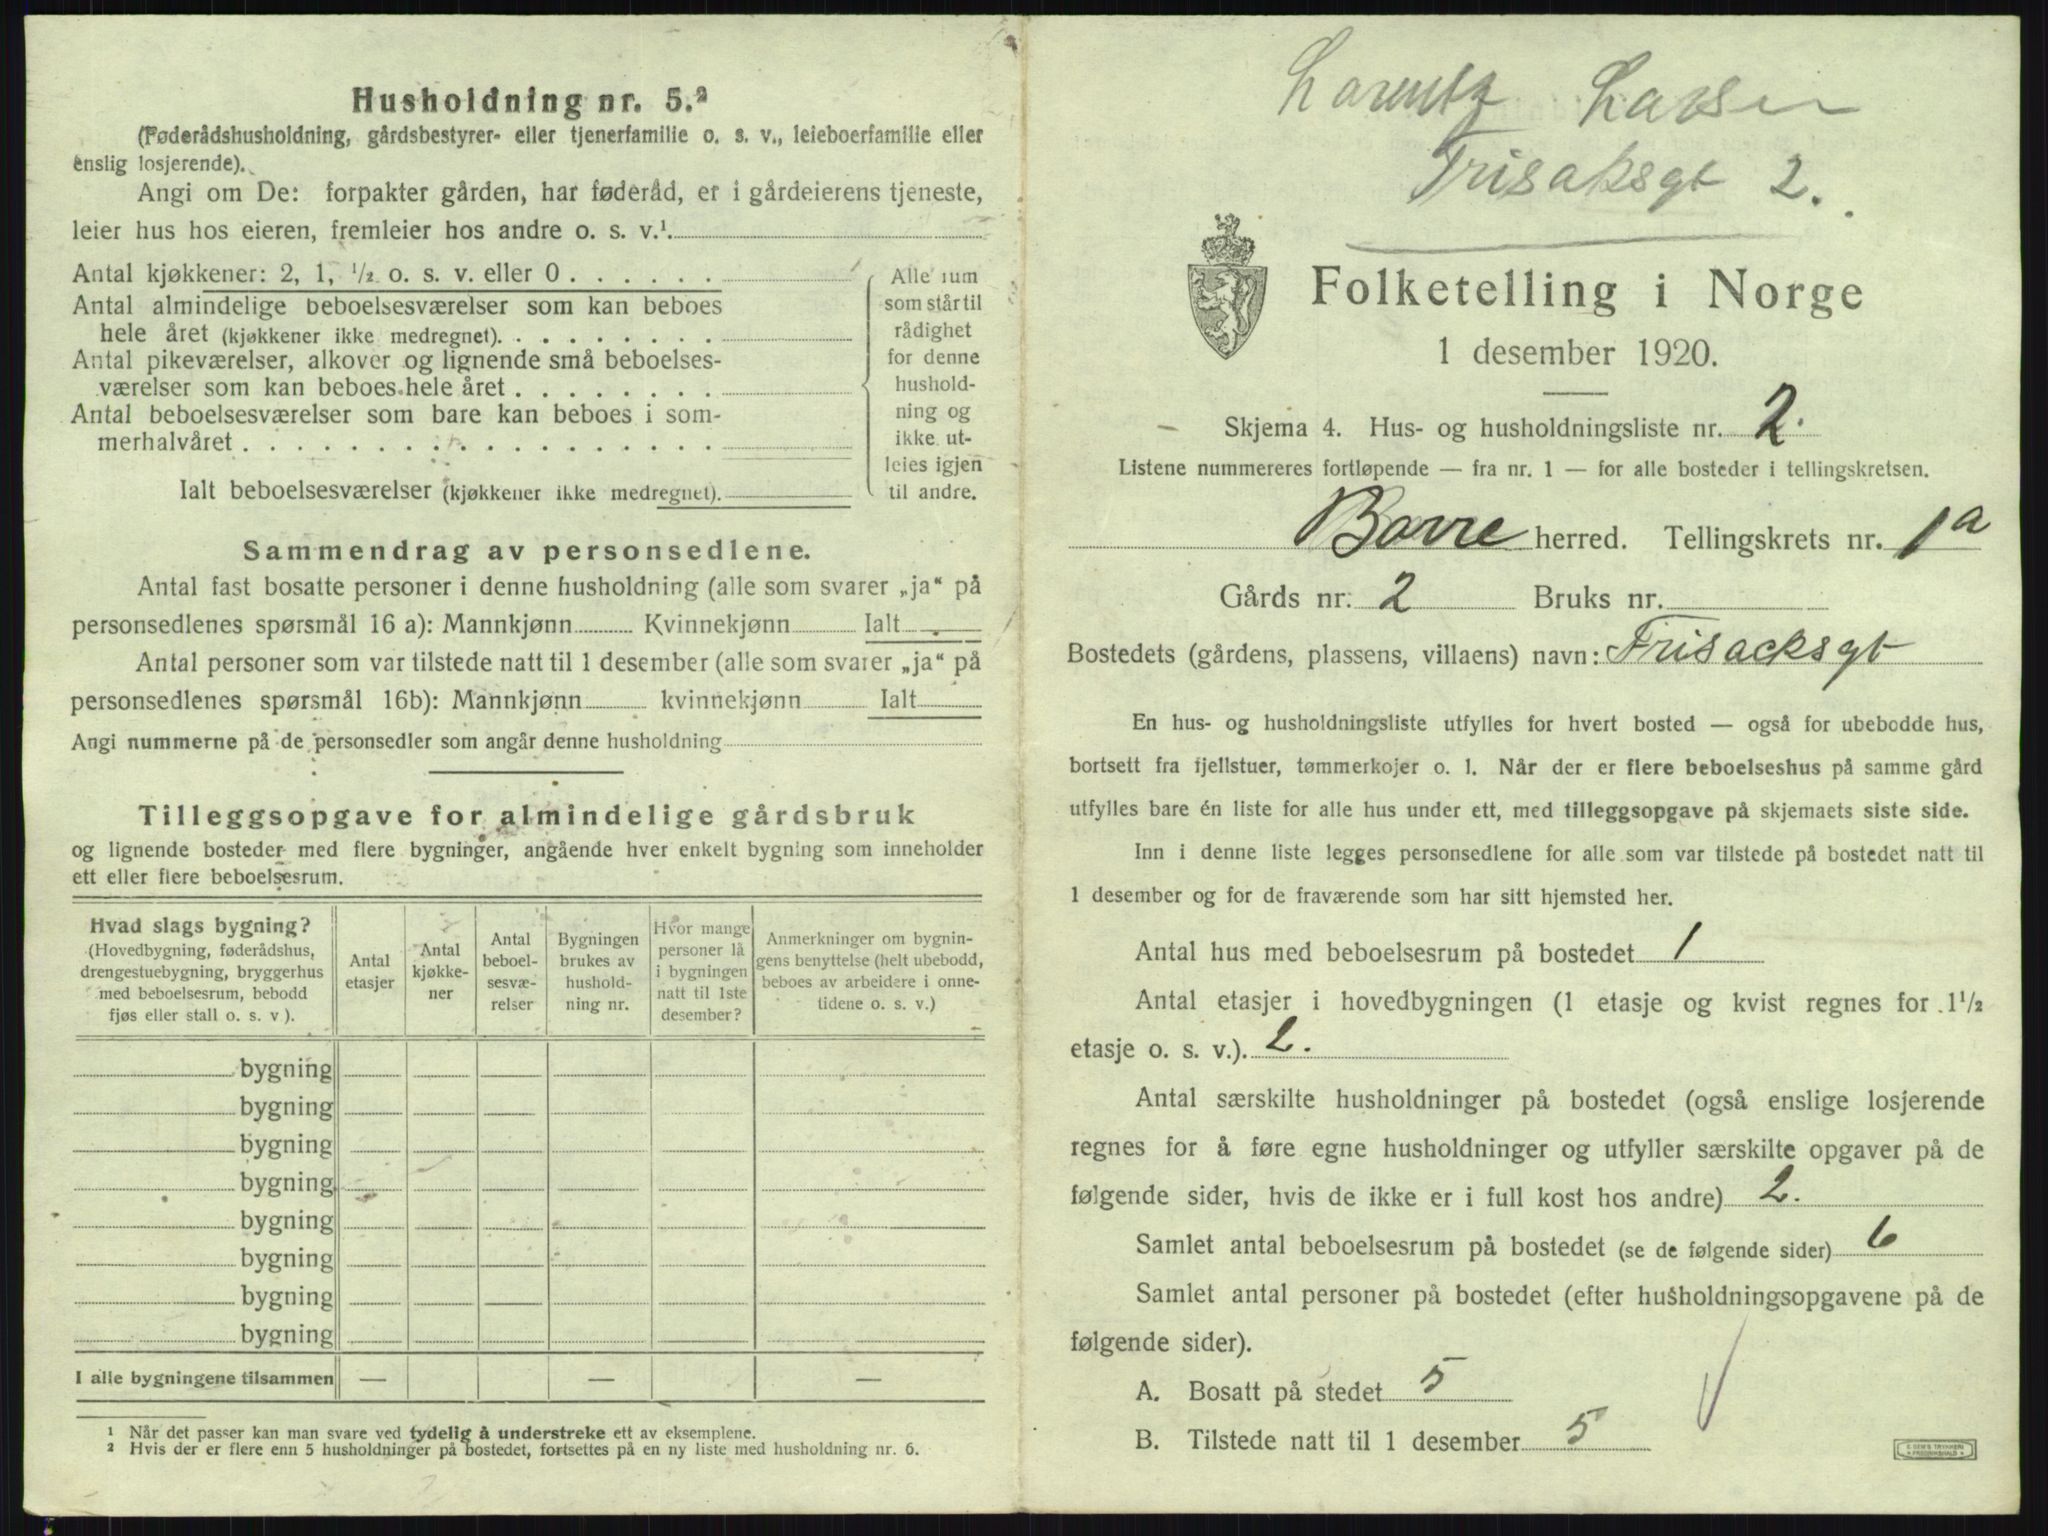 Husholdning nr. 5.²
(Føderådshusholdning, gårdsbestyrer- eller tjenerfamilie o. s. v., leieboerfamilie eller
enslig losjerende).
Angi om De: forpakter gården, har føderåd, er i gårdeierens tjeneste,
leier hus hos eieren, fremleier hos andre o. s. v.¹.
Antal kjøkkener: 2, 1, ½ o. s. v. eller 0 . . . . . .
Antal almindelige beboelsesværelser som kan beboes
hele året (kjøkkener ikke medregnet). . . . . . . . .
Antal pikeværelser, alkover og lignende små beboelses-
værelser som kan beboes hele året . . . . . . . .
Antal beboelsesværelser som bare kan beboes i som-
merhalvåret . . . . . . . . . . . . . . . . . .
Ialt beboelsesværelser (kjøkkener ikke medregnet).
Alle rum
som står til
rådighet
for denne
hushold-
ning og
ikke ut-
leies igjen
til andre.
Sammendrag av personsedlene.
Antal fast bosatte personer i denne husholdning (alle som svarer „ja“ på
personsedlenes spørsmål 16 a): Mannkjønn Kvinnekjønn Ialt
Antal personer som var tilstede natt til 1 desember (alle som svarer „ja“ på
personsedlenes spørsmål 16b): Mannkjønn kvinnekjønn Ialt
Angi nummerne på de personsedler som angår denne husholdning
Tilleggsopgave for almindelige gårdsbruk
og lignende bosteder med flere bygninger, angående hver enkelt bygning som inneholder
ett eller flere beboelsesrum.
Hvad slags bygning?
(Hovedbygning, føderådshus,
drengestuebygning, bryggerhus
med beboelsesrum, bebodd
fjøs eller stall o. s. v ).
Antal
etasjer
Antal
kjøkke-
ner
Antal
beboel-
sesvæ-
relser
Bygningen
brukes av
hushold-
ning nr.
Hvor mange
personer lå
i bygningen
natt til 1ste
desember?
Anmerkninger om bygnin-
gens benyttelse (helt ubebodd,
beboes av arbeidere i onne-
tidene o. s. v.)
bygning
bygning
bygning
bygning
bygning
bygning
bygning
bygning
I alle bygningene tilsammen — — —
¹ Når det passer kan man svare ved tydelig å understreke ett av eksemplene.
² Hvis der er flere enn 5 husholdninger på bostedet, fortsettes på en ny liste med husholdning nr. 6.
Lorentz Larsen
Frisaksgt 2.
Folketelling i Norge
1 desember 1920.
Skjema 4. Hus- og husholdningsliste nr. 2.
Listene nummereres fortløpende — fra nr. 1 — for alle bosteder i tellingskretsen.
Borre herred. Tellingskrets nr. 1a
Gårds nr. 2 Bruks nr.
Bostedets (gårdens, plassens, villaens) navn: Frisacksgt
En hus- og husholdningsliste utfylles for hvert bosted — også for ubebodde hus,
bortsett fra fjellstuer, tømmerkojer o. l. Når der er flere beboelseshus på samme gård
utfylles bare én liste for alle hus under ett, med tilleggsopgave på skjemaets siste side.
Inn i denne liste legges personsedlene for alle som var tilstede på bostedet natt til
1 desember og for de fraværende som har sitt hjemsted her.
Antal hus med beboelsesrum på bostedet 1
Antal etasjer i hovedbygningen (1 etasje og kvist regnes for 1½
etasje o. s. v.). 2.
Antal særskilte husholdninger på bostedet (også enslige losjerende
regnes for å føre egne husholdninger og utfyller særskilte opgaver på de
følgende sider, hvis de ikke er i full kost hos andre) 2.
Samlet antal beboelsesrum på bostedet (se de følgende sider) 6
Samlet antal personer på bostedet (efter husholdningsopgavene på de
følgende sider).
A. Bosatt på stedet 5
B. Tilstede natt til 1 desember 5
E. SEM'S TRYKKERI
FREDRIKSHALD